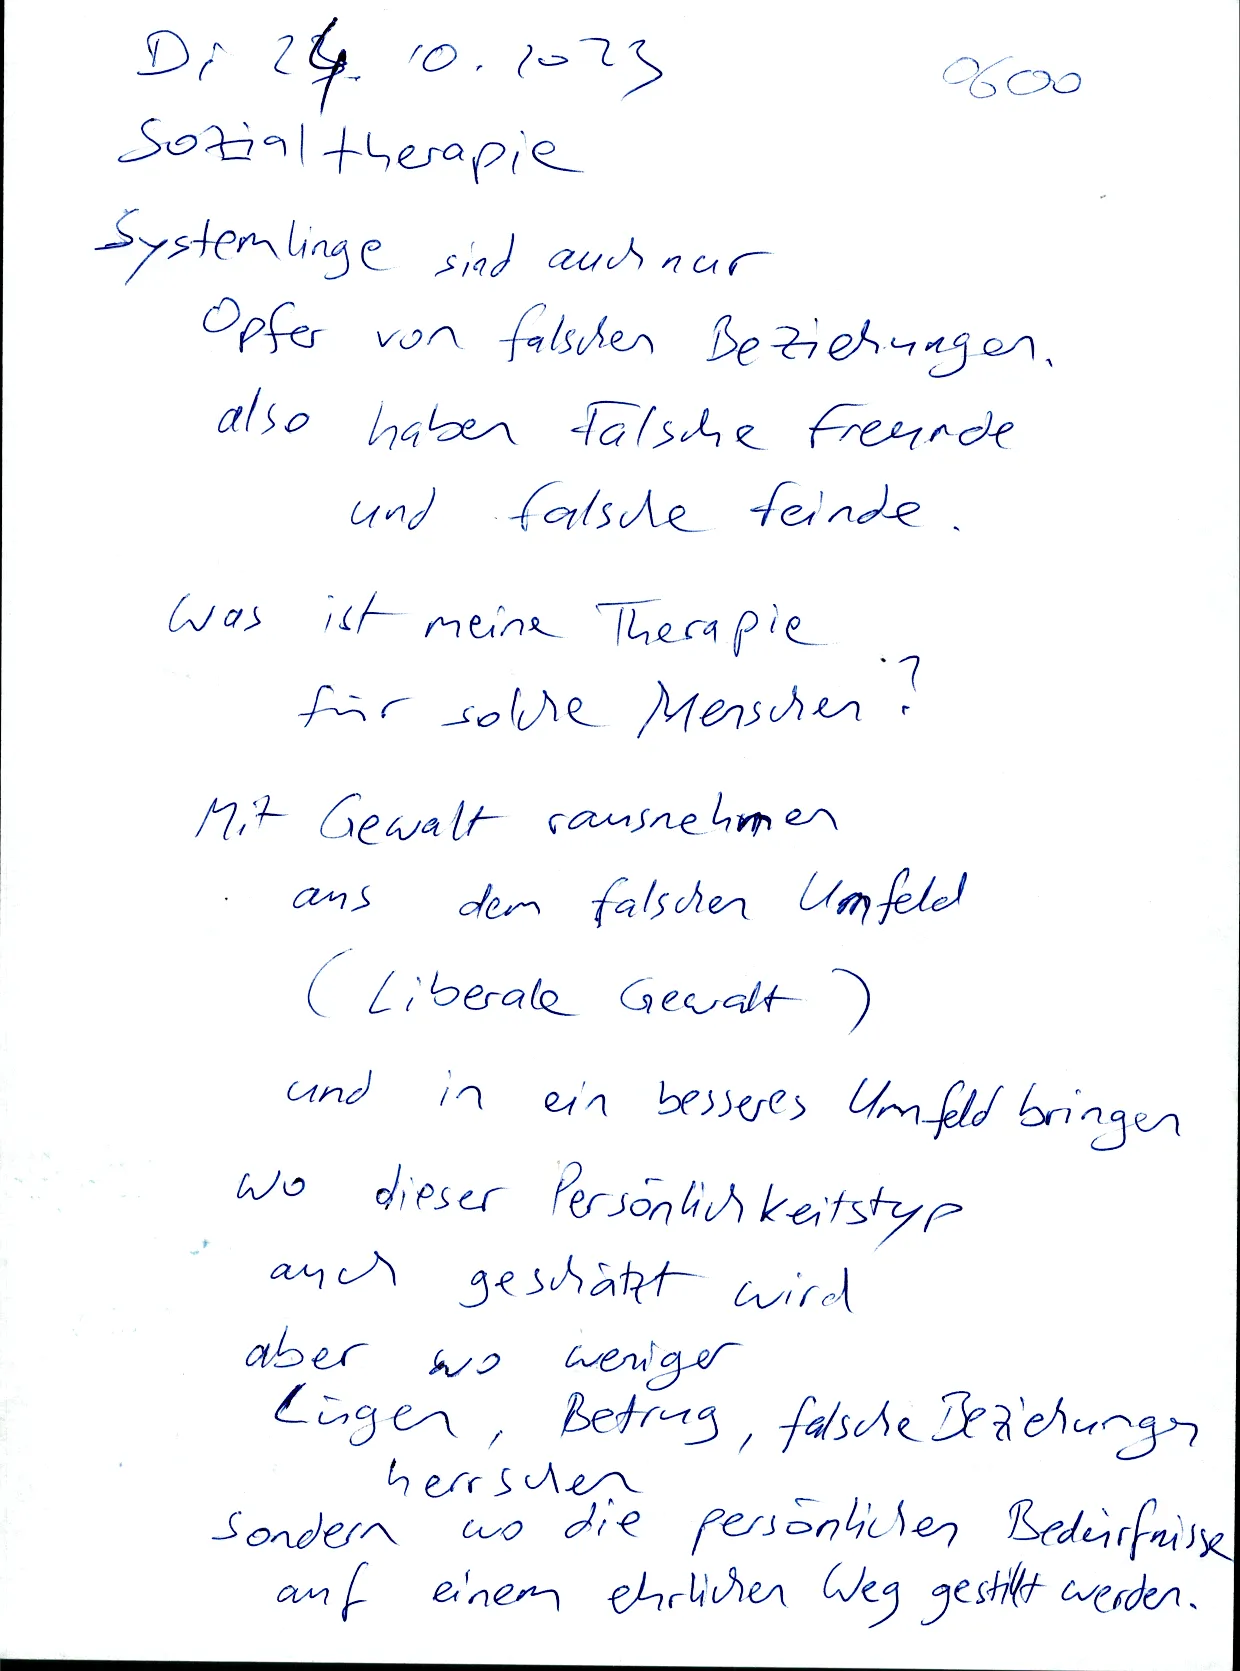 Di 24. 10. 2023 0600
Sozialtherapie
Systemlinge sind auch nur
Opfer von falschen Beziehungen.
also haben falsche Freunde
und falsche Feinde.
Was ist meine Therapie
für solche Menschen?
Mit Gewalt rausnehmen
aus dem falschen Umfeld
(Liberale Gewalt)
und in ein besseres Umfeld bringen
wo dieser Persönlichkeitstyp
auch geschätzt wird
aber wo weniger
Lügen, Betrug, falsche Beziehungen
herrschen
sondern wo die persönlichen Bedürfnisse
auf einem ehrlichen Weg gestillt werden.